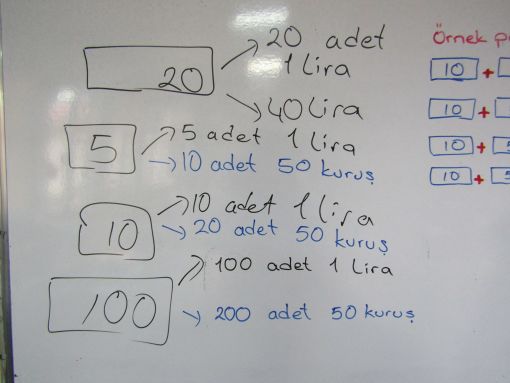 20
20 adet
1 Lira
40 Lira
5
5 adet 1 Lira
10 adet 50 kuruş
10
10 adet 1 Lira
20 adet 50 kuruş
100
100 adet 1 Lira
200 adet 50 kuruş
Örnek
10 +
10 +
10 + 5
10 + 5